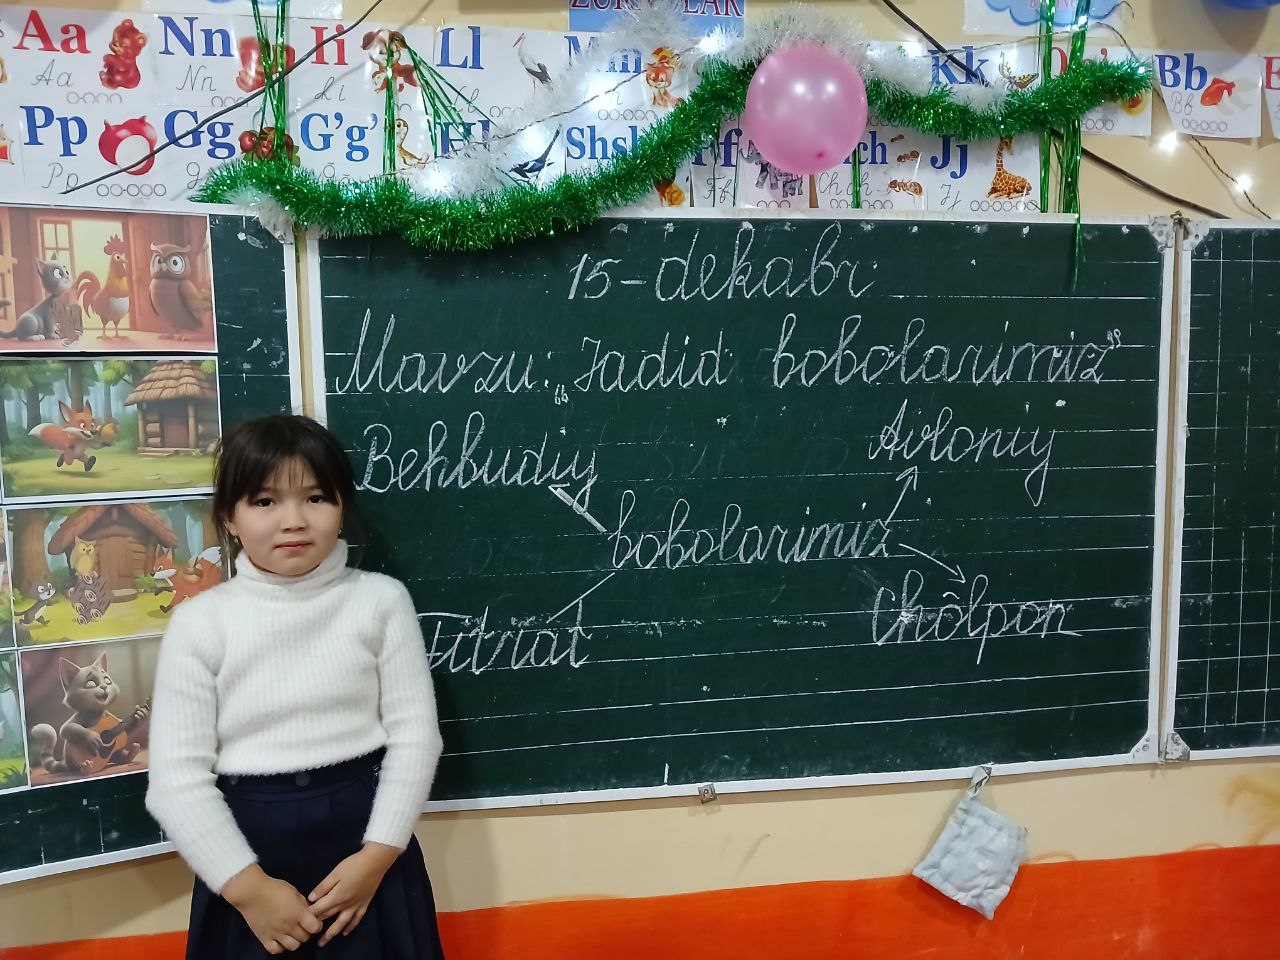 Aa Nn Ii Ll Mm Kk Bb
Aa Nn Ii
Pp Gg G'g' Shsh Jj
Pp Ch ch Jj
15-dekabr.
Mavzu: „Jadid bobolarimiz"
Behbudiy Avloniy
bobolarimiz
Fitrat Chôlpon